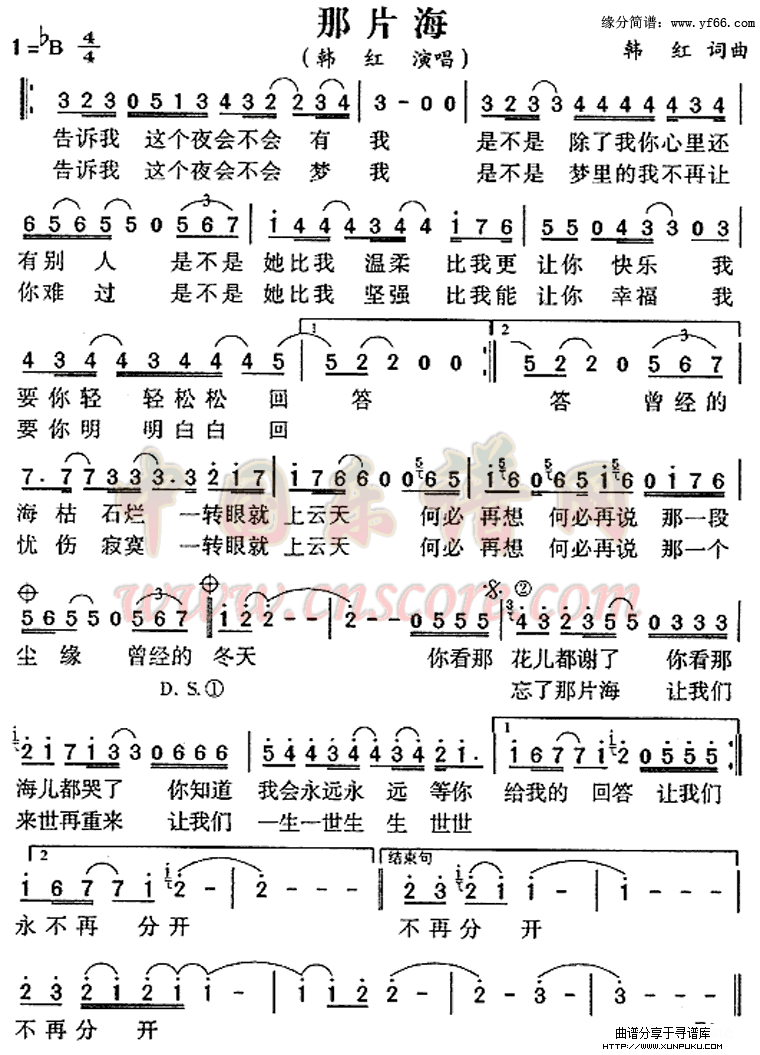 那片海
缘分简谱：www.yf66.com
1=♭B 4/4
（韩 红 演唱）
韩 红 词曲
3 2 3 0 5 1 3 4 3 2 2 3 4 | 3 - 0 0 | 3 2 3 3 4 4 4 4 4 3 4
告诉我 这个夜会不会 有 我 是不是 除了我你心里还
告诉我 这个夜会不会 梦 我 是不是 梦里的我不再让
6 5 6 5 5 0 5 6 7 | i 4 4 3 4 4 i 7 6 | 5 5 0 4 3 3 0 3
有别 人 是不是 她比我 温柔 比我更 让你 快乐 我
你难 过 是不是 她比我 坚强 比我能 让你 幸福 我
4 3 4 4 3 4 4 4 5 | 5 2 2 0 0 :| 5 2 2 0 5 6 7
要你轻 轻松松 回 答 答 曾经的
要你明 明白白 回
7. 7 7 3 3 3. 3 2 i 7 | i 7 6 6 0 0 6 5 | i 6 0 6 5 i 6 0 i 7 6
海枯 石烂 一转眼就 上云天 何必 再想 何必再说 那一段
忧伤 寂寞 一转眼就 上云天 何必 再想 何必再说 那一个
5 6 5 5 0 5 6 7 | i 2 2 - - | 2 - 0 0 5 5 5 | 4 3 2 3 5 5 0 3 3 3
尘缘 曾经的 冬天 你看那 花儿都谢了 你看那
D. S.① 忘了那片海 让我们
2 i 7 i 3 3 0 6 6 6 | 5 4 4 3 4 4 3 4 2 i. | i 6 7 7 i 2 0 5 5 5 :|
海儿都哭了 你知道 我会永远永 远 等你 给我的 回答 让我们
来世再重来 让我们 一生一世生 生 世世
2 结束句
i 6 7 7 i 2 - | 2 - - - | 2 3 2 i i - | i - - -
永不再 分开 不再分 开
2 3 2 i 2 i i | i - - i i 2 | 2 - 3 - | 3 - - - ||
不再分 开
中国乐谱网
www.cnscore.com
曲谱分享于寻谱库
HTTP://WWW.XUNPUKU.COM